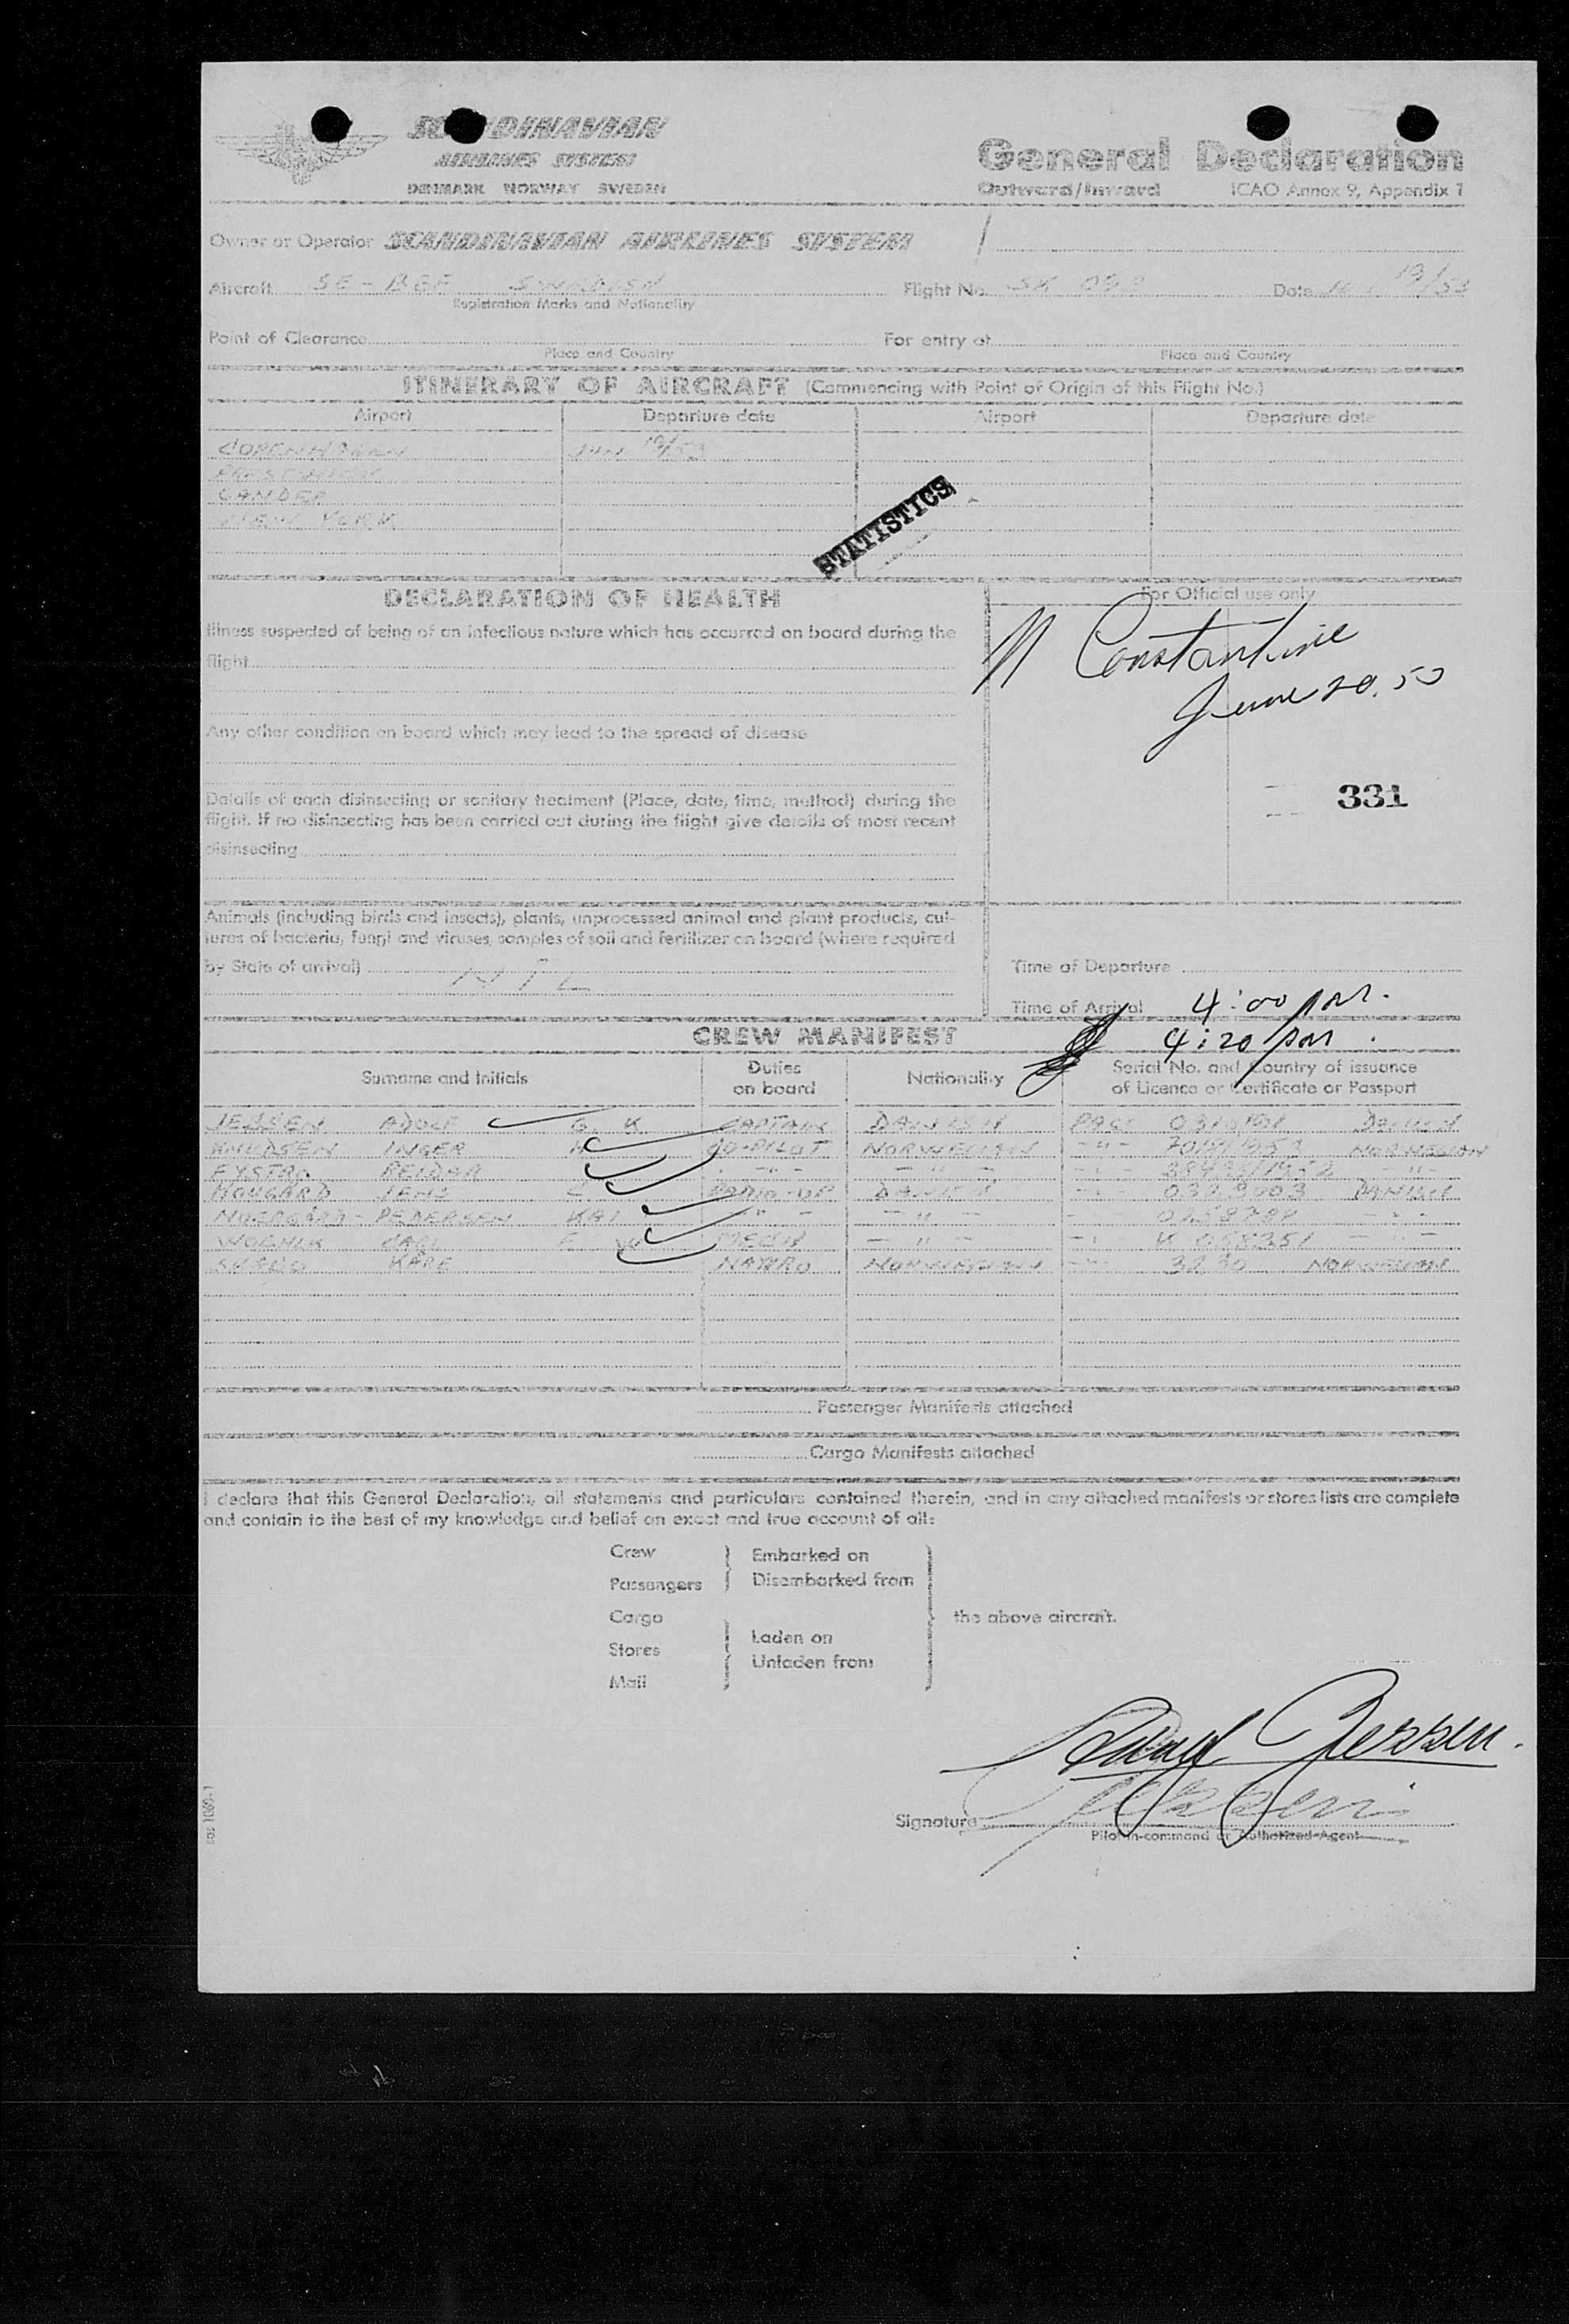 SCANDINAVIAN
AIRLINES SYSTEM
DENMARK NORWAY SWEDEN
General Declaration
Outward/Inward ICAO Annex 9, Appendix 1
Owner or Operator SCANDINAVIAN AIRLINES SYSTEM
Aircraft SE - SWEDISH Flight No. SK Date 19/53
Registration Marks and Nationality
Point of Clearance For entry at
Place and Country Place and Country
ITINERARY OF AIRCRAFT (Commencing with Point of Origin of this Flight No.)
Airport Departure date Airport Departure date
COPENHAGEN JUN 19/53
PRESTWICK
GANDER
NEW YORK
STATISTICS
DECLARATION OF HEALTH
For Official use only
Illness suspected of being of an infectious nature which has occurred on board during the
flight
Constantine
June 20, 53
Any other condition on board which may lead to the spread of disease
331
Details of each disinsecting or sanitary treatment (Place, date, time, method) during the
flight. If no disinsecting has been carried out during the flight give details of most recent
disinsecting
Animals (including birds and insects), plants, unprocessed animal and plant products, cul-
tures of bacteria, fungi and viruses, samples of soil and fertilizer on board (where required
by State of arrival) NIL
Time of Departure
Time of Arrival 4:00 pm.
4:20 pm.
CREW MANIFEST
Surname and Initials Duties on board Nationality Serial No. and Country of issuance of Licence or Certificate or Passport
JESSEN ADOLF G. K. CAPTAIN DANISH PASS DANISH
KNUDSEN INGER H CO-PILOT NORWEGIAN - " - NORWEGIAN
REIDAR - " - - " - - " - - " -
JENS E. RADIO-OP DANISH - " - DANISH
NOERGÅRD - PEDERSEN KAI - " - - " -
CARL E W MECH - " - - " - K 055351 - " -
KARE NAVRO NORWEGIAN - " - NORWEGIAN
Passenger Manifests attached
Cargo Manifests attached
I declare that this General Declaration, all statements and particulars contained therein, and in any attached manifests or stores lists are complete
and contain to the best of my knowledge and belief an exact and true account of all:
Crew
Passengers
Embarked on
Disembarked from
Cargo
Stores
Mail
Laden on
Unladen from
the above aircraft.
Jessen.
Signature Jessen
Pilot-in-command or Authorized Agent
sas 1069-1